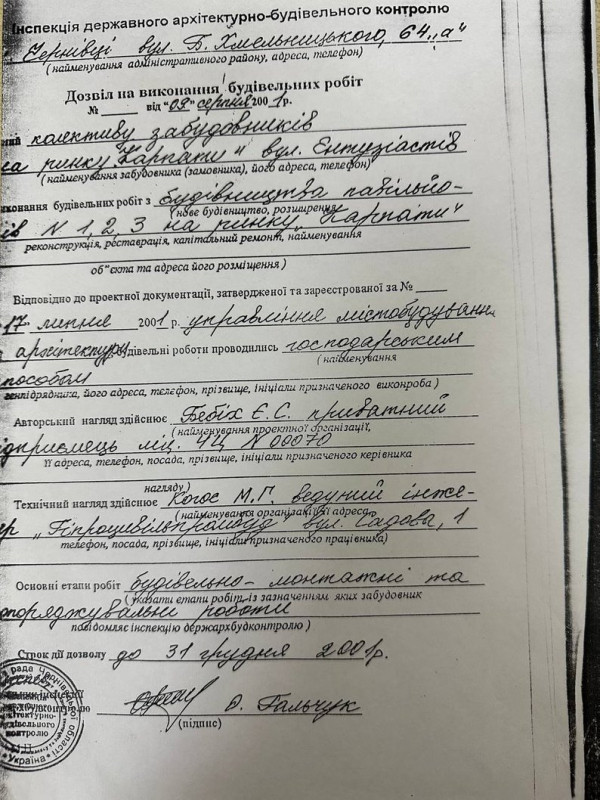 Інспекція державного архітектурно-будівельного контролю
Чернівці вул. Б. Хмельницького, 64 „а"
(найменування адміністративного району, адреса, телефон)
Дозвіл на виконання будівельних робіт
№ _____ від "09" серпня 2001 р.
колективу забудовників
на ринку „Карпати" вул. Ентузіастів
(найменування забудовника (замовника), його адреса, телефон)
виконання будівельних робіт з будівництва павільйо-
(нове будівництво, розширення
ів N 1, 2, 3 на ринку „Карпати"
реконструкція, реставрація, капітальний ремонт, найменування
об"єкта та адреса його розміщення)
Відповідно до проектної документації, затвердженої та зареєстрованої за № _____
17 липня 2001 р. управління містобудування
архітектури будівельні роботи проводились господарським
(найменування
способом
генпідрядника, його адреса, телефон, прізвище, ініціали призначеного виконроба)
Авторський нагляд здійснює Бебіх Є. С. приватний
(найменування проектної організації,
підприємець ліц. ЧЦ N 00070
її адреса, телефон, посада, прізвище, ініціали призначеного керівника
нагляду)
Технічний нагляд здійснює Когос М. Г. ведучий інже-
(найменування організації її адреса
ер „Гіпроцивільпромбуд" вул. Садова, 1
телефон, посада, прізвище, ініціали призначеного працівника)
Основні етапи робіт будівельно-монтажні та
(указати етапи робіт із зазначенням яких забудовник
опоряджувальні роботи
повідомляє інспекцію держархбудконтролю)
Строк дії дозволу до 31 грудня 2001р.
інспекції
контролю О. Гальчук
(підпис)
рада Чернівецької області
архітектурно-
будівельного
контролю
Україна